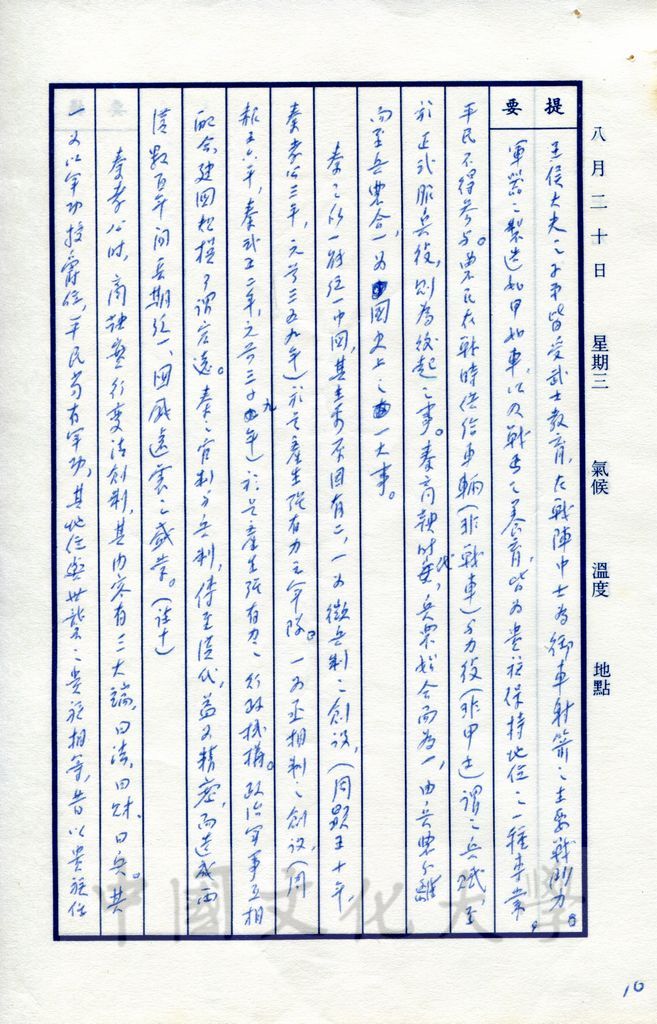 八月二十日 星期三 氣候 溫度 地點
提要
王侯大夫之子弟皆受武士教育，在戰陣中士為御車射箭之主要戰鬥力。
軍器之製造如甲如車，以及戰馬之養育，皆為貴族保持地位之一種專業，
平民不得參与。農民在戰時供給車輛（非戰車）与力役（非甲士）謂之兵賦，至
於正式服兵役，則為後起之事。秦商鞅時代，兵農始合而為一，由兵農分離
而至兵農合一為國史上之一大事。
秦之所以能統一中國，其主要原因有二，一為徵兵制之創設，（周顯王十年，
秦孝公三年，元前三五九年）於是產生強有力之軍隊。一為丞相制之創設，（周
赧王六年，秦武王二年，元前三〇九年）於是產生強有力之行政機構。政治軍事互相
配合，建國規模可謂宏遠。秦之官制与兵制，傳至漢代，益為精密，而造成兩
漢數百年間長期統一、國威遠震之盛業。（註十）
秦孝公時，商鞅實行變法創制，其內容有三大端，曰法，曰財，曰兵。其
一為以軍功授爵位，平民苟有軍功，其地位與世襲之貴族相等，昔以貴族任
中國文化大學
10